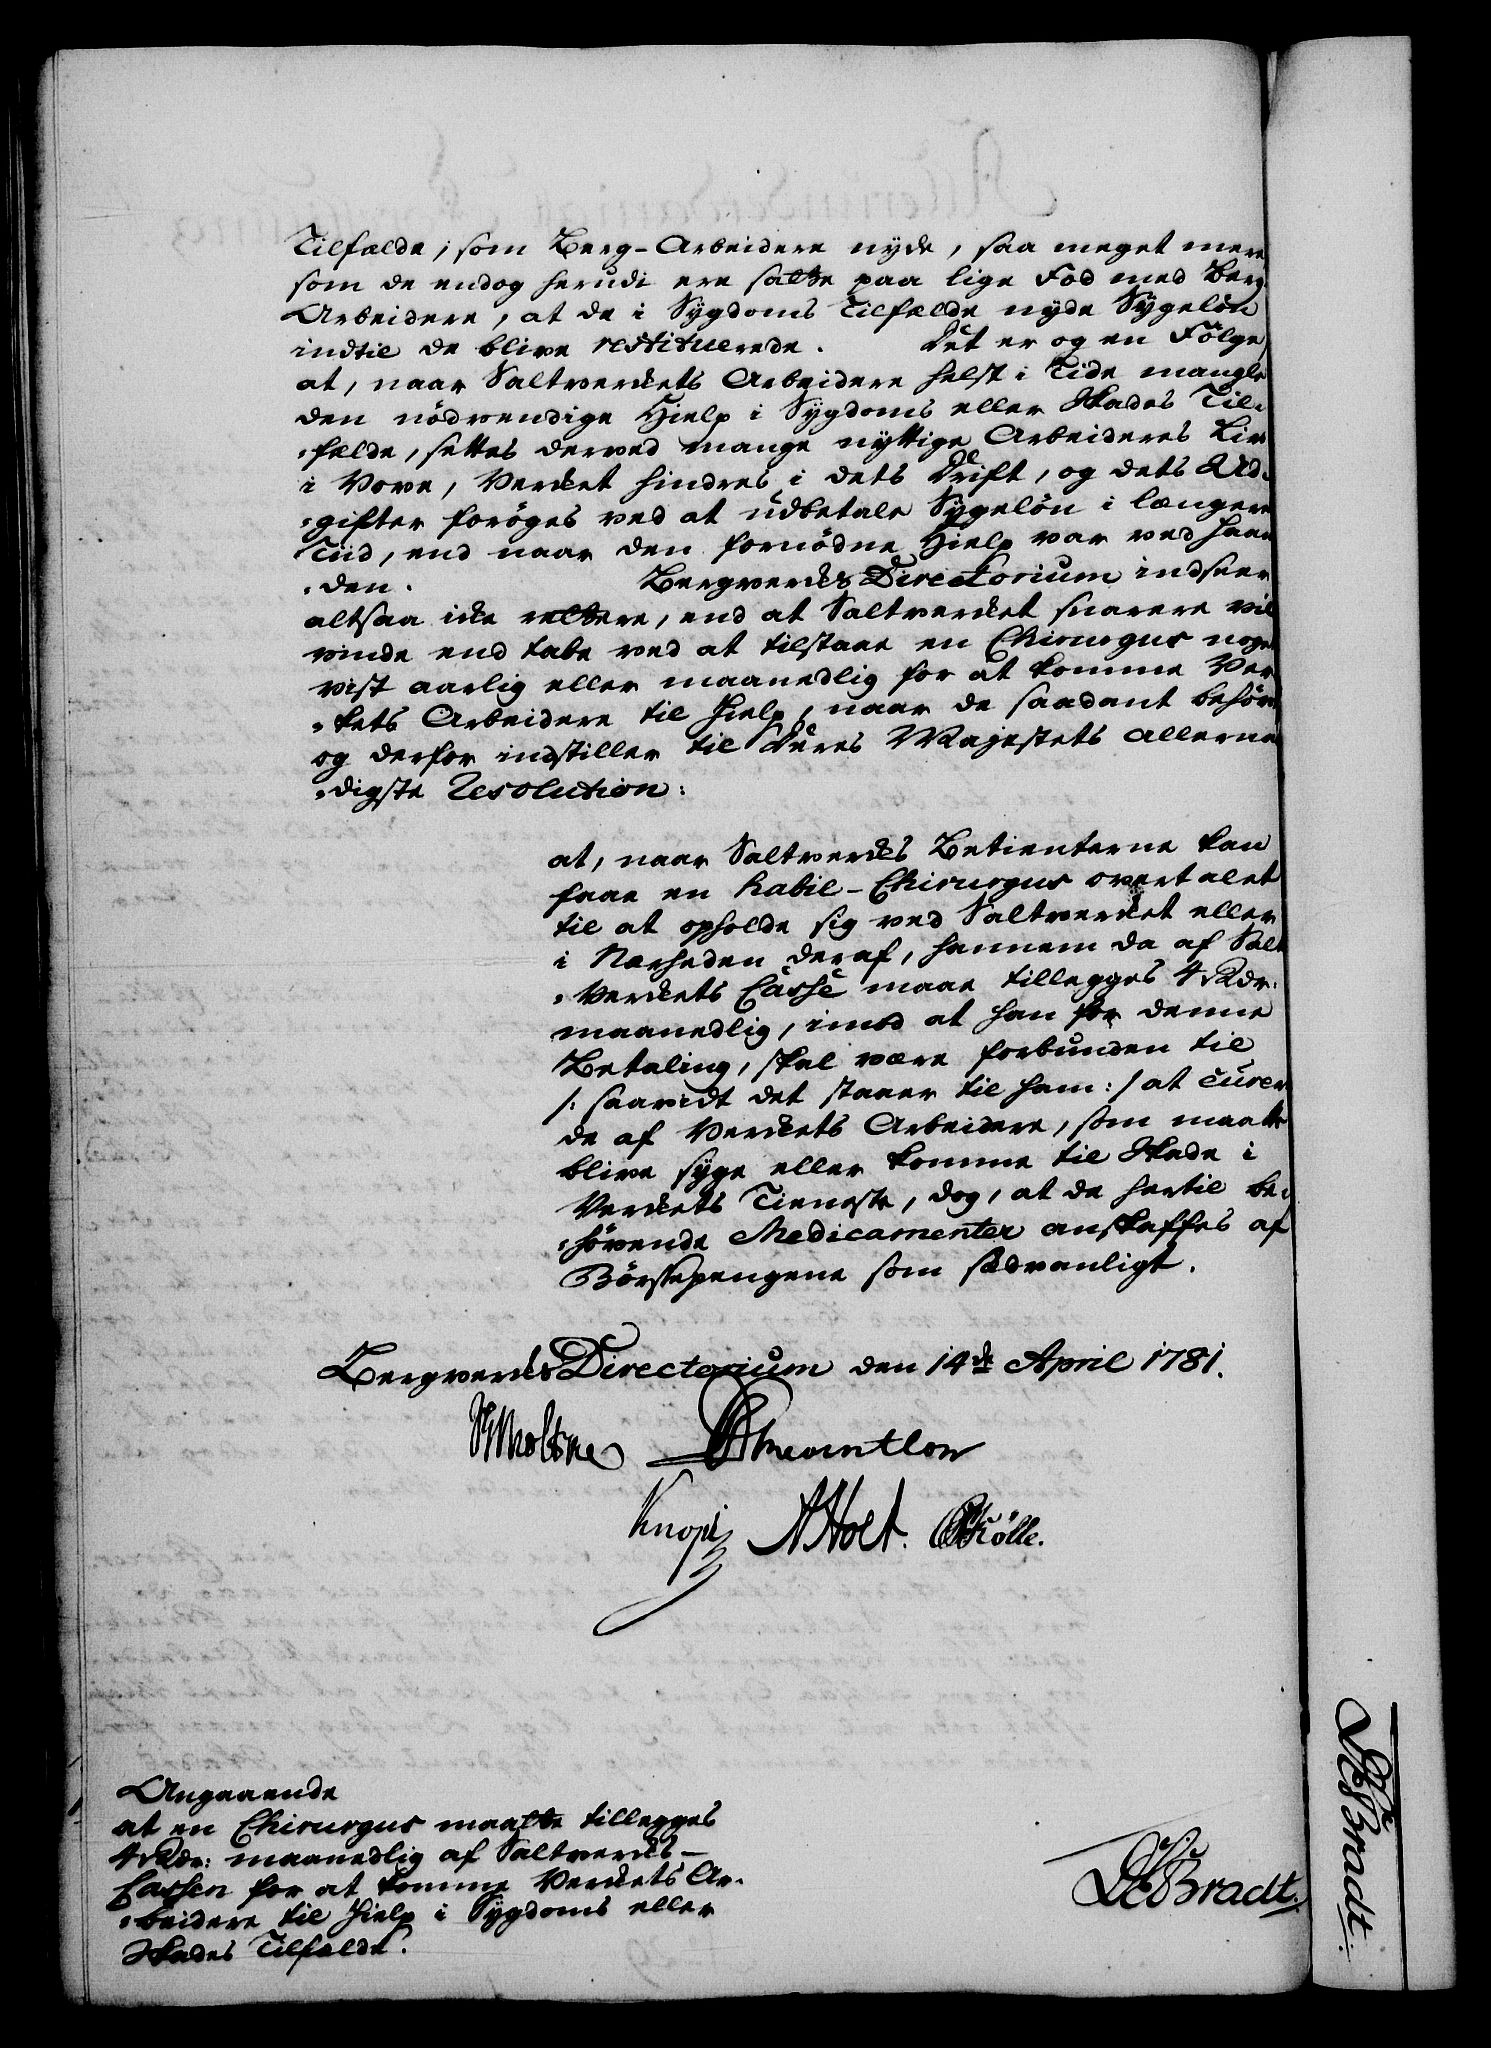 Tilfælde, som Berg-Arbeidere nyde, saa meget mere
som de endog herudi ere satte paa lige Fod med Berg
Arbeidere, at de i Sygdoms Tilfælde nyde Sygelön
indtil de blive restituerede. Det er og en Fölge,
at, naar Saltverkets Arbeidere helst i Tide mangle
den nödvendige Hielp i Sygdoms eller Skades Til-
-fælde, settes derved mange nyttige Arbeideres Liv
i Vove, Verket hindres i dets Drift, og dets Ud-
-gifter foröges ved at udbetale Sygelön i længere
Tiid, end naar den fornödne Hielp var ved Haan
-den. Bergverks Directorium indseer
altsaa ikke rettere, end at Saltverket snarere vil
vinde end tabe ved at tilstaae en Chirurgus noget
vist aarlig eller maanedlig for at komme Ver
-kets Arbeidere til Hielp, naar de saadant behöve
og derfor indstiller til Deres Majestets allerna
-digste Resolution:
at, naar Saltverks Betienterne kan
faae en habil-Chirurgus overtalet
til at opholde sig ved Saltverket eller
i Nærheden deraf, hannem da af Salt
-Verkets Casse maae tillegges 4 Rdr.
maanedlig, imod at han for denne
Betaling, skal være forbunden til
/: saavidt det staaer til ham: / at curere
de af Verkets Arbeidere, som maatte
blive syge eller komme til Skade i
Verkets Tieneste, dog, at de hertil be-
-hövende Medicamenter anskaffes af
Börssepengene som sædvanligt.
Bergverks Directorium den 14de April 1781.
Moltke Reventlow
Knoph A Holt. Kölle.
Angaaende
at en Chirurgus maatte tillegges
4 Rdr: maanedlig af Saltverks-
Cassen for at komme Verkets Ar-
-beidere til Hielp i Sygdoms eller
Skades Tilfælde.
Bradt.
Bradt.